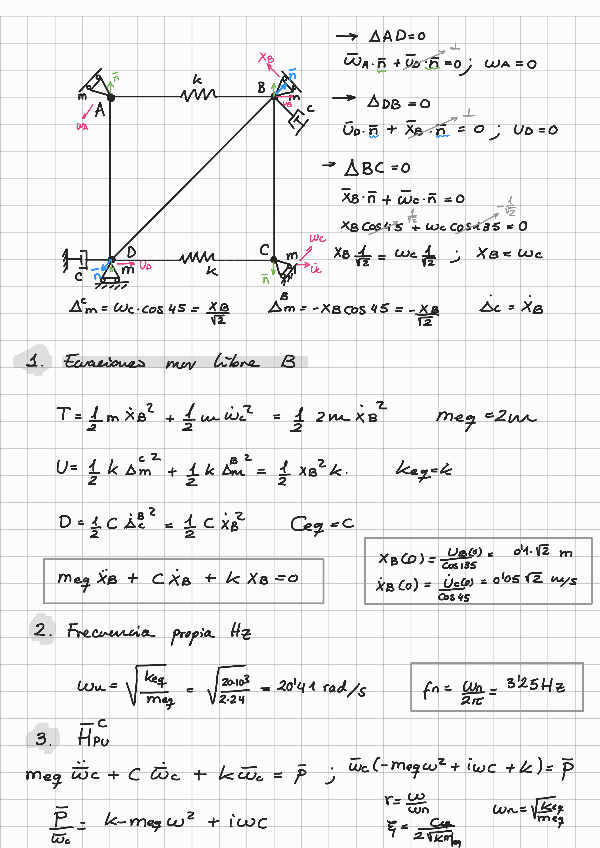 → ΔAD=0
w̄A·n̄ + ūD·n̄ =0 ; wA = 0
⊥
→ ΔDB = 0
ūD·n̄ + x̄B·n̄ = 0 ; uD=0
⊥
→ ΔBC=0
x̄B·n̄ + w̄c·n̄ = 0
xB cos45 + wc cos135 = 0
1/√2
-1/√2
xB 1/√2 = wc 1/√2 ; xB = wc
k
A
m
n̄
wA
B
xB
n̄
m
c
D
c
m
n̄
uD
k
C
m
n̄
wc
uc
Δm^c = wc·cos 45 = xB/√2
Δm^B = -xB cos 45 = -xB/√2
Δ̇c = ẋB
1. Ecuaciones mov libre B
T = 1/2 m ẋB² + 1/2 m ẇc² = 1/2 2m ẋB²
meq = 2m
U = 1/2 k Δm^c ² + 1/2 k Δm^B ² = 1/2 xB² k.
keq=k
D = 1/2 C Δ̇c^B ² = 1/2 C ẋB²
Ceq = C
meq ẍB + C ẋB + k xB = 0
xB(0) = uB(0)/cos135 = 0'1·√2 m
ẋB(0) = u̇c(0)/cos45 = 0'05 √2 m/s
2. Frecuencia propia Hz
ωn = √(keq/meq) = √(20·10³/2·24) = 20'41 rad/s
fn = ωn/2π = 3'25Hz
3. H̄PU^C
meq ẅ̄c + C ẇ̄c + k w̄c = p̄ ; w̄c(-meqω² + iωC + k) = p̄
p̄/w̄c = k-meqω² + iωC
r = ω/ωn
ωn=√(keq/meq)